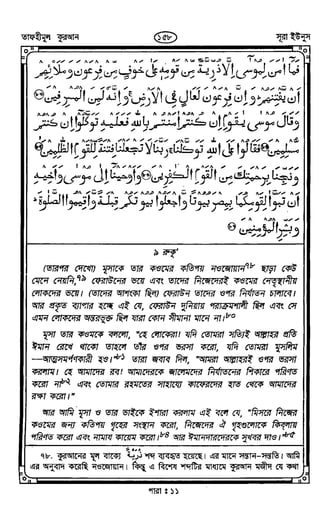 তাফহীমুল কুরআন
১৫৮
সূরা ইউনুস
فَمَا اٰمَنَ لِمُوْسٰٓى اِلَّا ذُرِّيَّةٌ مِّنْ قَوْمِهٖ عَلٰى خَوْفٍ مِّنْ فِرْعَوْنَ وَمَلَا۟ئِهِمْ
اَنْ يَّفْتِنَهُمْ ؕ وَاِنَّ فِرْعَوْنَ لَعَالٍ فِى الْاَرْضِ ۚ وَاِنَّهٗ لَمِنَ الْمُسْرِفِيْنَ
وَقَالَ مُوْسٰى يٰقَوْمِ اِنْ كُنْتُمْ اٰمَنْتُمْ بِاللّٰهِ فَعَلَيْهِ تَوَكَّلُوْٓا اِنْ كُنْتُمْ
مُّسْلِمِيْنَ فَقَالُوْا عَلَى اللّٰهِ تَوَكَّلْنَا ۚ رَبَّنَا لَا تَجْعَلْنَا فِتْنَةً لِّلْقَوْمِ الظّٰلِمِيْنَ
وَنَجِّنَا بِرَحْمَتِكَ مِنَ الْقَوْمِ الْكٰفِرِيْنَ وَاَوْحَيْنَآ اِلٰى مُوْسٰى وَاَخِيْهِ
اَنْ تَبَوَّاٰ لِقَوْمِكُمَا بِمِصْرَ بُيُوْتًا وَّاجْعَلُوْا بُيُوْتَكُمْ قِبْلَةً وَّاَقِيْمُوا الصَّلٰوةَ ؕ
وَبَشِّرِ الْمُؤْمِنِيْنَ
৯ রুকূ'
(তারপর দেখো) মূসাকে তার কওমের কতিপয় নওজোয়ান৭৮ ছাড়া কেউ
মেনে নেয়নি,৭৯ ফেরাউনের ভয়ে এবং তাদের নিজেদেরই কওমের নেতৃস্থানীয়
লোকদের ভয়ে। (তাদের আশংকা ছিল) ফেরাউন তাদের ওপর নির্যাতন চালাবে।
আর প্রকৃত ব্যাপার হচ্ছে এই যে, ফেরাউন দুনিয়ায় পরাক্রমশালী ছিল এবং সে
এমন লোকদের অন্তরভুক্ত ছিল যারা কোন সীমানা মানে না।৮০
মূসা তার কওমকে বললো, "হে লোকেরা। যদি তোমরা সত্যিই আল্লাহর প্রতি
ঈমান রেখে থাকো তাহলে তাঁর ওপর ভরসা করো, যদি তোমরা মুসলিম
—আত্মসমর্পণকারী হও।৮১ তারা জবাব দিল, "আমরা আল্লাহরই ওপর ভরসা
করলাম। হে আমাদের রব! আমাদেরকে জালেমদের নির্যাতনের শিকারে পরিণত
করো না৮২ এবং তোমার রহমতের সাহায্যে কাফেরদের হাত থেকে আমাদের
রক্ষা করো।"
আর আমি মূসা ও তার ভাইকে ইশারা করলাম এই বলে যে, "মিসরে নিজের
কওমের জন্য কতিপয় গৃহের সংস্থান করো, নিজেদের ঐ গৃহগুলোকে কিবলায়
পরিণত করো এবং নামায কায়েম করো।৮৪ আর ঈমানদারদেরকে সুখবর দাও।৮৫
৭৮. কুরআনের মূল বাক্যে ذُرِّيَّةٌ শব্দ ব্যবহৃত হয়েছে। এর মানে সন্তান-সন্ততি। আমি
এর অনুবাদ করেছি নওজোয়ান। কিন্তু এ বিশেষ শব্দটির মাধ্যমে কুরআন মজীদ যে কথা
পারা : ১১